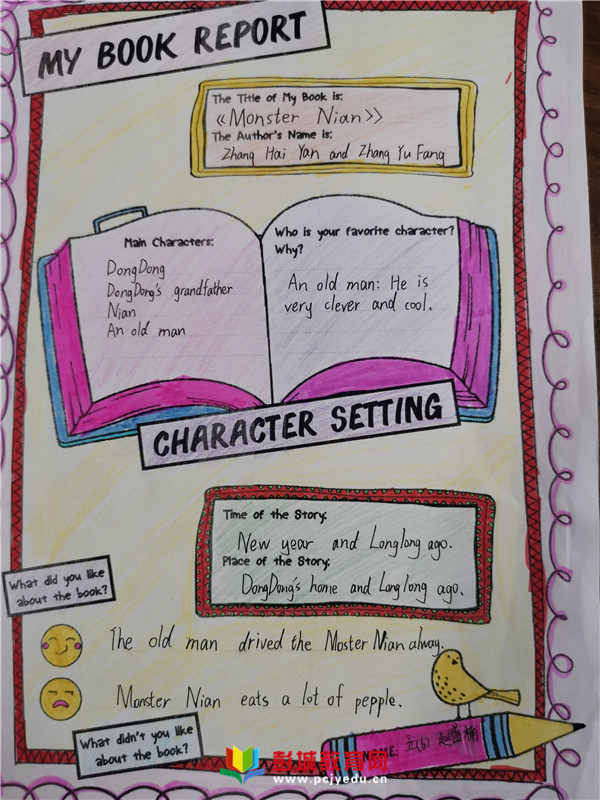 MY BOOK REPORT
The Title of My Book is:
《Monster Nian》
The Author's Name is:
Zhang Hai Yan and Zhang Yu Fang
Main Characters:
DongDong
DongDong's grandfather
Nian
An old man
Who is your favorite character?
Why?
An old man: He is
very clever and cool.
CHARACTER SETTING
Time of the Story:
New year and Longlong ago.
Place of the Story:
DongDong's home and Longlong ago.
What did you like
about the book?
The old man drived the Moster Nian alway.
Monster Nian eats a lot of pepple.
What didn't you like
about the book?
NAME: 五(6) 赵
彭城教育网
www.pcjyedu.cn